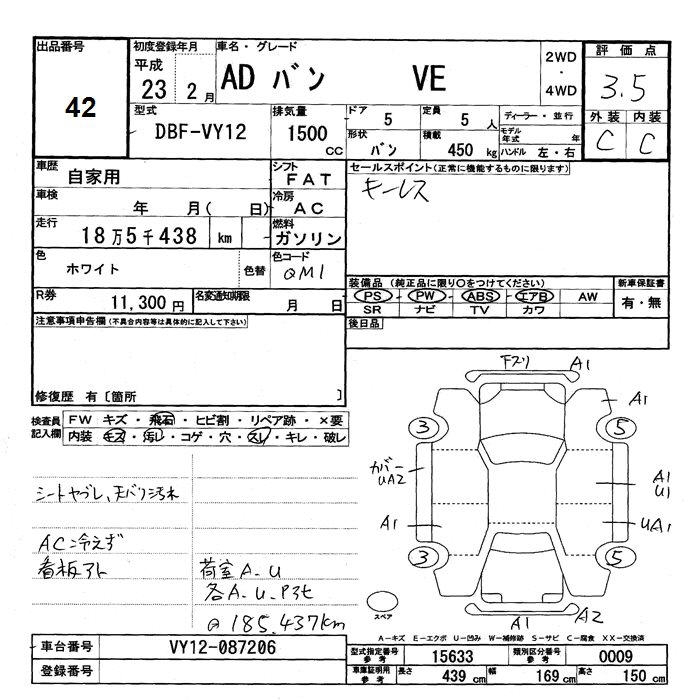 出品番号
42
初度登録年月
平成
23 2月
車名・グレード
ADバン VE
2WD
・
4WD
評価点
3.5
外装 内装
C C
型式
DBF-VY12
排気量
1500 CC
ドア 5
定員 5 人
ディーラー・並行
形状 バン
積載 450 kg
モデル年式 年
ハンドル 左・右
車歴
自家用
シフト
FAT
車検
年 月( 日)
冷房
AC
走行
18万5千438 km
燃料
ガソリン
色
ホワイト
色替
色コード
QM1
R券
11,300円
名変通知期限
月 日
セールスポイント(正常に機能するものに限ります)
キーレス
装備品(純正品に限り○をつけてください)
PS - PW - ABS - エアB AW
SR ナビ TV カワ
新車保証書
有・無
後日品
注意事項申告欄(不具合内容等は具体的に記入して下さい)
修復歴 有〔箇所 〕
検査員
記入欄
FW キズ・飛石・ヒビ割・リペア跡・×要
内装 キズ・汚レ・コゲ・穴・スレ・キレ・破レ
シートヤブレ、天バリ汚れ
AC冷えず
看板アト
荷室A-U
各A-U.Pアセ
@185,437km
Fスリ A1
A1
3 5
カバー
UA2
A1
U1
A1
UA1
3 5
スペア
A1 A2
A-キズ E-エクボ U-凹み W-補修跡 S-サビ C-腐食 XX-交換済
車台番号
VY12-087206
登録番号
型式指定番号
参考
15633
類別区分番号
参考
0009
車庫証明用
参考
長さ 439 cm
幅 169 cm
高さ 150 cm